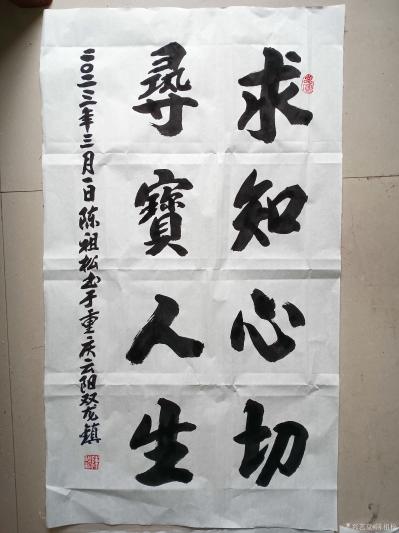 求知心切
尋寶人生
二〇二三年三月一日陈祖松书于重庆云阳双龙镇